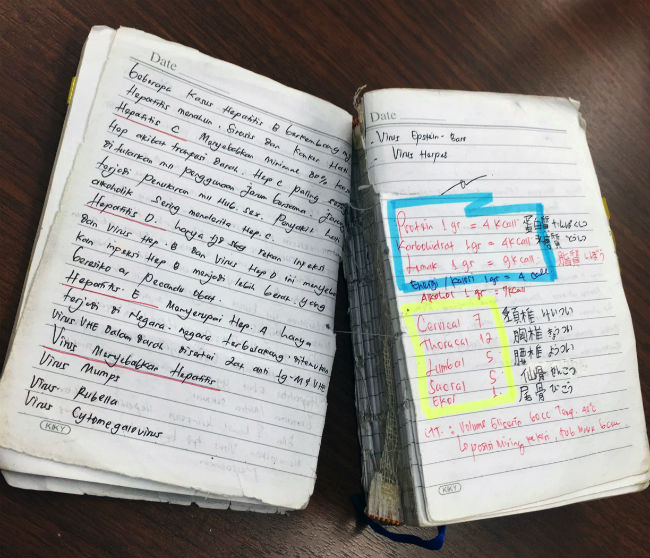 Date
beberapa Kasus Hepatitis B berkembang mj
Hepatitis menahun, Sirosis dan Kanker Hati
Hepatitis C. Menyebabkan Minimal 80% kasus
Hep akibat tranpusi Darah. Hep C paling sering
Ditularkan mll penggunaan Jarum bersama. Jarang
terjadi penularan mll Hub. sex. Penyakit hati
alkoholik sering menderita Hep. C.
Hepatitis D. hanya sbg rekan inpeksi
dari virus Hep. B dan Virus Hep D ini menyebab
kan inpeksi Hep B menjadi lebih berat. yang
beresiko ad Pecandu obat.
Hepatitis E Menyerupai Hep. A hanya
terjadi di Negara-negara terbelakang. Ditemukan
Virus VHE Dalam Darah Disertai zat anti Ig-M VHE
Virus Menyebabkan Hepatitis
Virus Mumps
Virus Rubella
Virus Cytomegalovirus
KIKY
Date
- Virus Epstein-Barr
- Virus Herpes
Protein 1 gr = 4 Kcall 蛋白質 たんぱくしつ
Karbohidrat 1gr = 4Kcall 糖質 とうしつ
Lemak 1 gr = 9Kcall 脂質 しぼう
Energi/kalori 1gr = 4 call
Alkohol 1 gr = 7Kcall
Cervical 7 頚椎 けいつい
Thoracal 12 胸椎 きょうつい
Lumbal 5 腰椎 ようつい
Sacral 5 仙骨 せんこつ
Ekol 1 尾骨 びこつ
: Volume Glicerin 60cc
Posisi Miring
KIKY